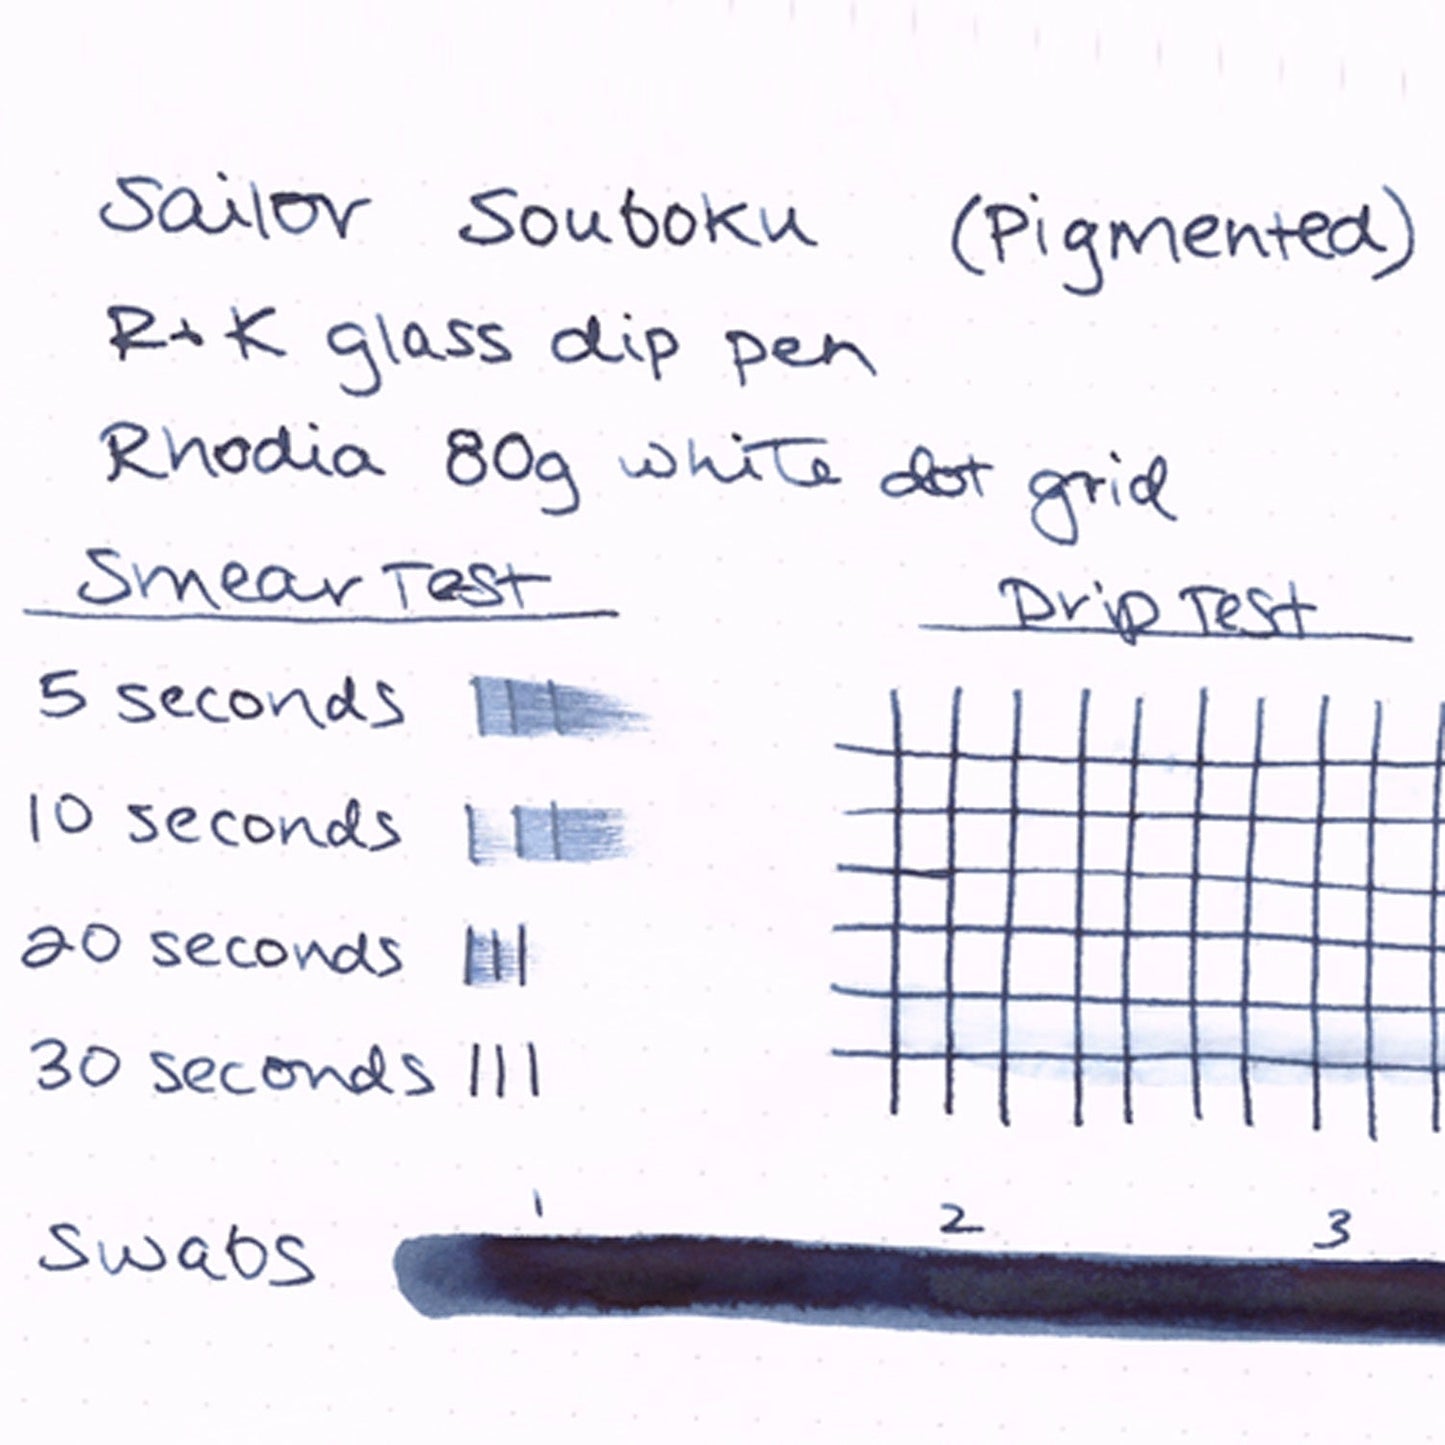 Sailor Souboku (Pigmented)
R+K glass dip pen
Rhodia 80g white dot grid
Smear Test
Drip Test
5 seconds
10 seconds
20 seconds
30 seconds
Swabs
1 2 3